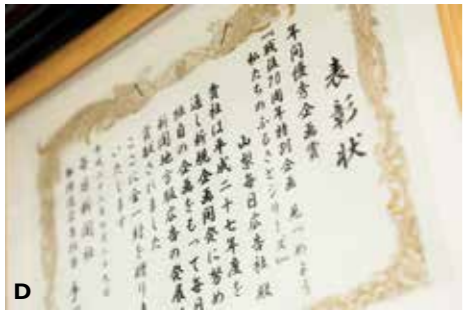 表彰状
年間優秀企画賞
『戦後70周年特別企画 見つめよう
私たちのふるさとシリーズ』
山梨毎日広告社 殿
貴社は平成二十七年度を
通し新規企画開発に努め
独自の企画をもって毎日
新聞地方版広告の発展
貢献されました
ここに金一封を贈り
いたします
平成二十八年
毎日新聞社
D